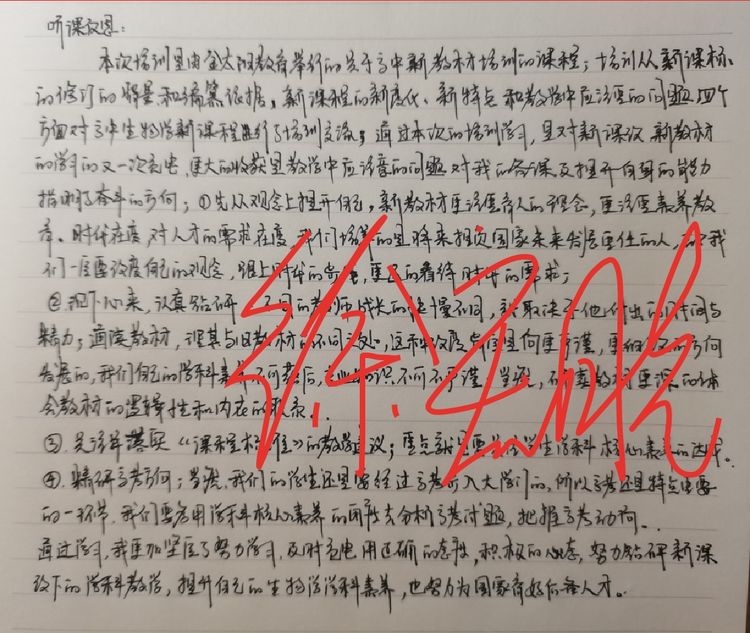 听课收获：
本次培训是由金太阳教育举行的关于高中新教材培训的课程；培训从新课标
的修订的背景和编纂依据，新课程的新变化、新特点和教学中应注意的问题四个
方面对高中生物学新课程进行了培训交流；通过本次的培训学习，是对新课改新教材
的学习的又一次充电，更大的收获是教学中应注意的问题对我的备课及提升自身的能力
指明了奋斗的方向；①先从观念上提升自己，新教材更注重育人的理念，更注重素养教
育、时代在变对人才的需求在变，我们培养的是将来担负国家未来发展重任的人，
们一定要改变自己的观念，跟上时代的，更的看待时代的要求；
②沉下心来，认真钻研 不同的教师成长的快慢不同，取决于他付出的时间与
精力；通读教材，理其与旧教材的不同之处，这种改变是向更严谨，更的方向
发展的，我们自己的学科素不可落后，不可不严谨 研读教材更深的体
会教材的逻辑性和内在的联系．
③．关注并落实《课程标准》的教学建议；重点学生学科核心素养的达成。
④．精研高考方向；当然，我们的学生还是要经过高考步入大学门的，所以高考还是特点重要
的一环节，我们要善用学科核心素养的角度去分析高考试题，把握高考动向．
通过学习，我更加坚定了努力学习，及时充电，用正确的态度，积极的心态，努力钻研新课
改下的学科教学，提升自己的生物学学科素养，也努力为国家育好后备人才。